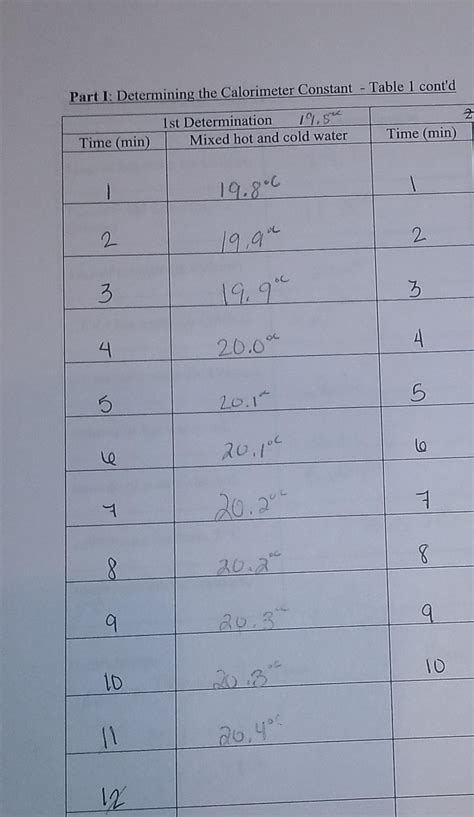 Part I: Determining the Calorimeter Constant - Table 1 cont'd
1st Determination 19.5°C 2
Time (min) Mixed hot and cold water Time (min)
1 19.8°C 1
2 19.9°C 2
3 19.9°C 3
4 20.0°C 4
5 20.1°C 5
6 20.1°C 6
7 20.2°C 7
8 20.2°C 8
9 20.3°C 9
10 20.3°C 10
11 20.4°C
12